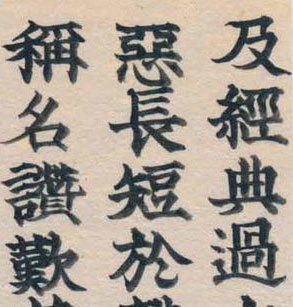 及經典過
惡長短於
稱名讚歎